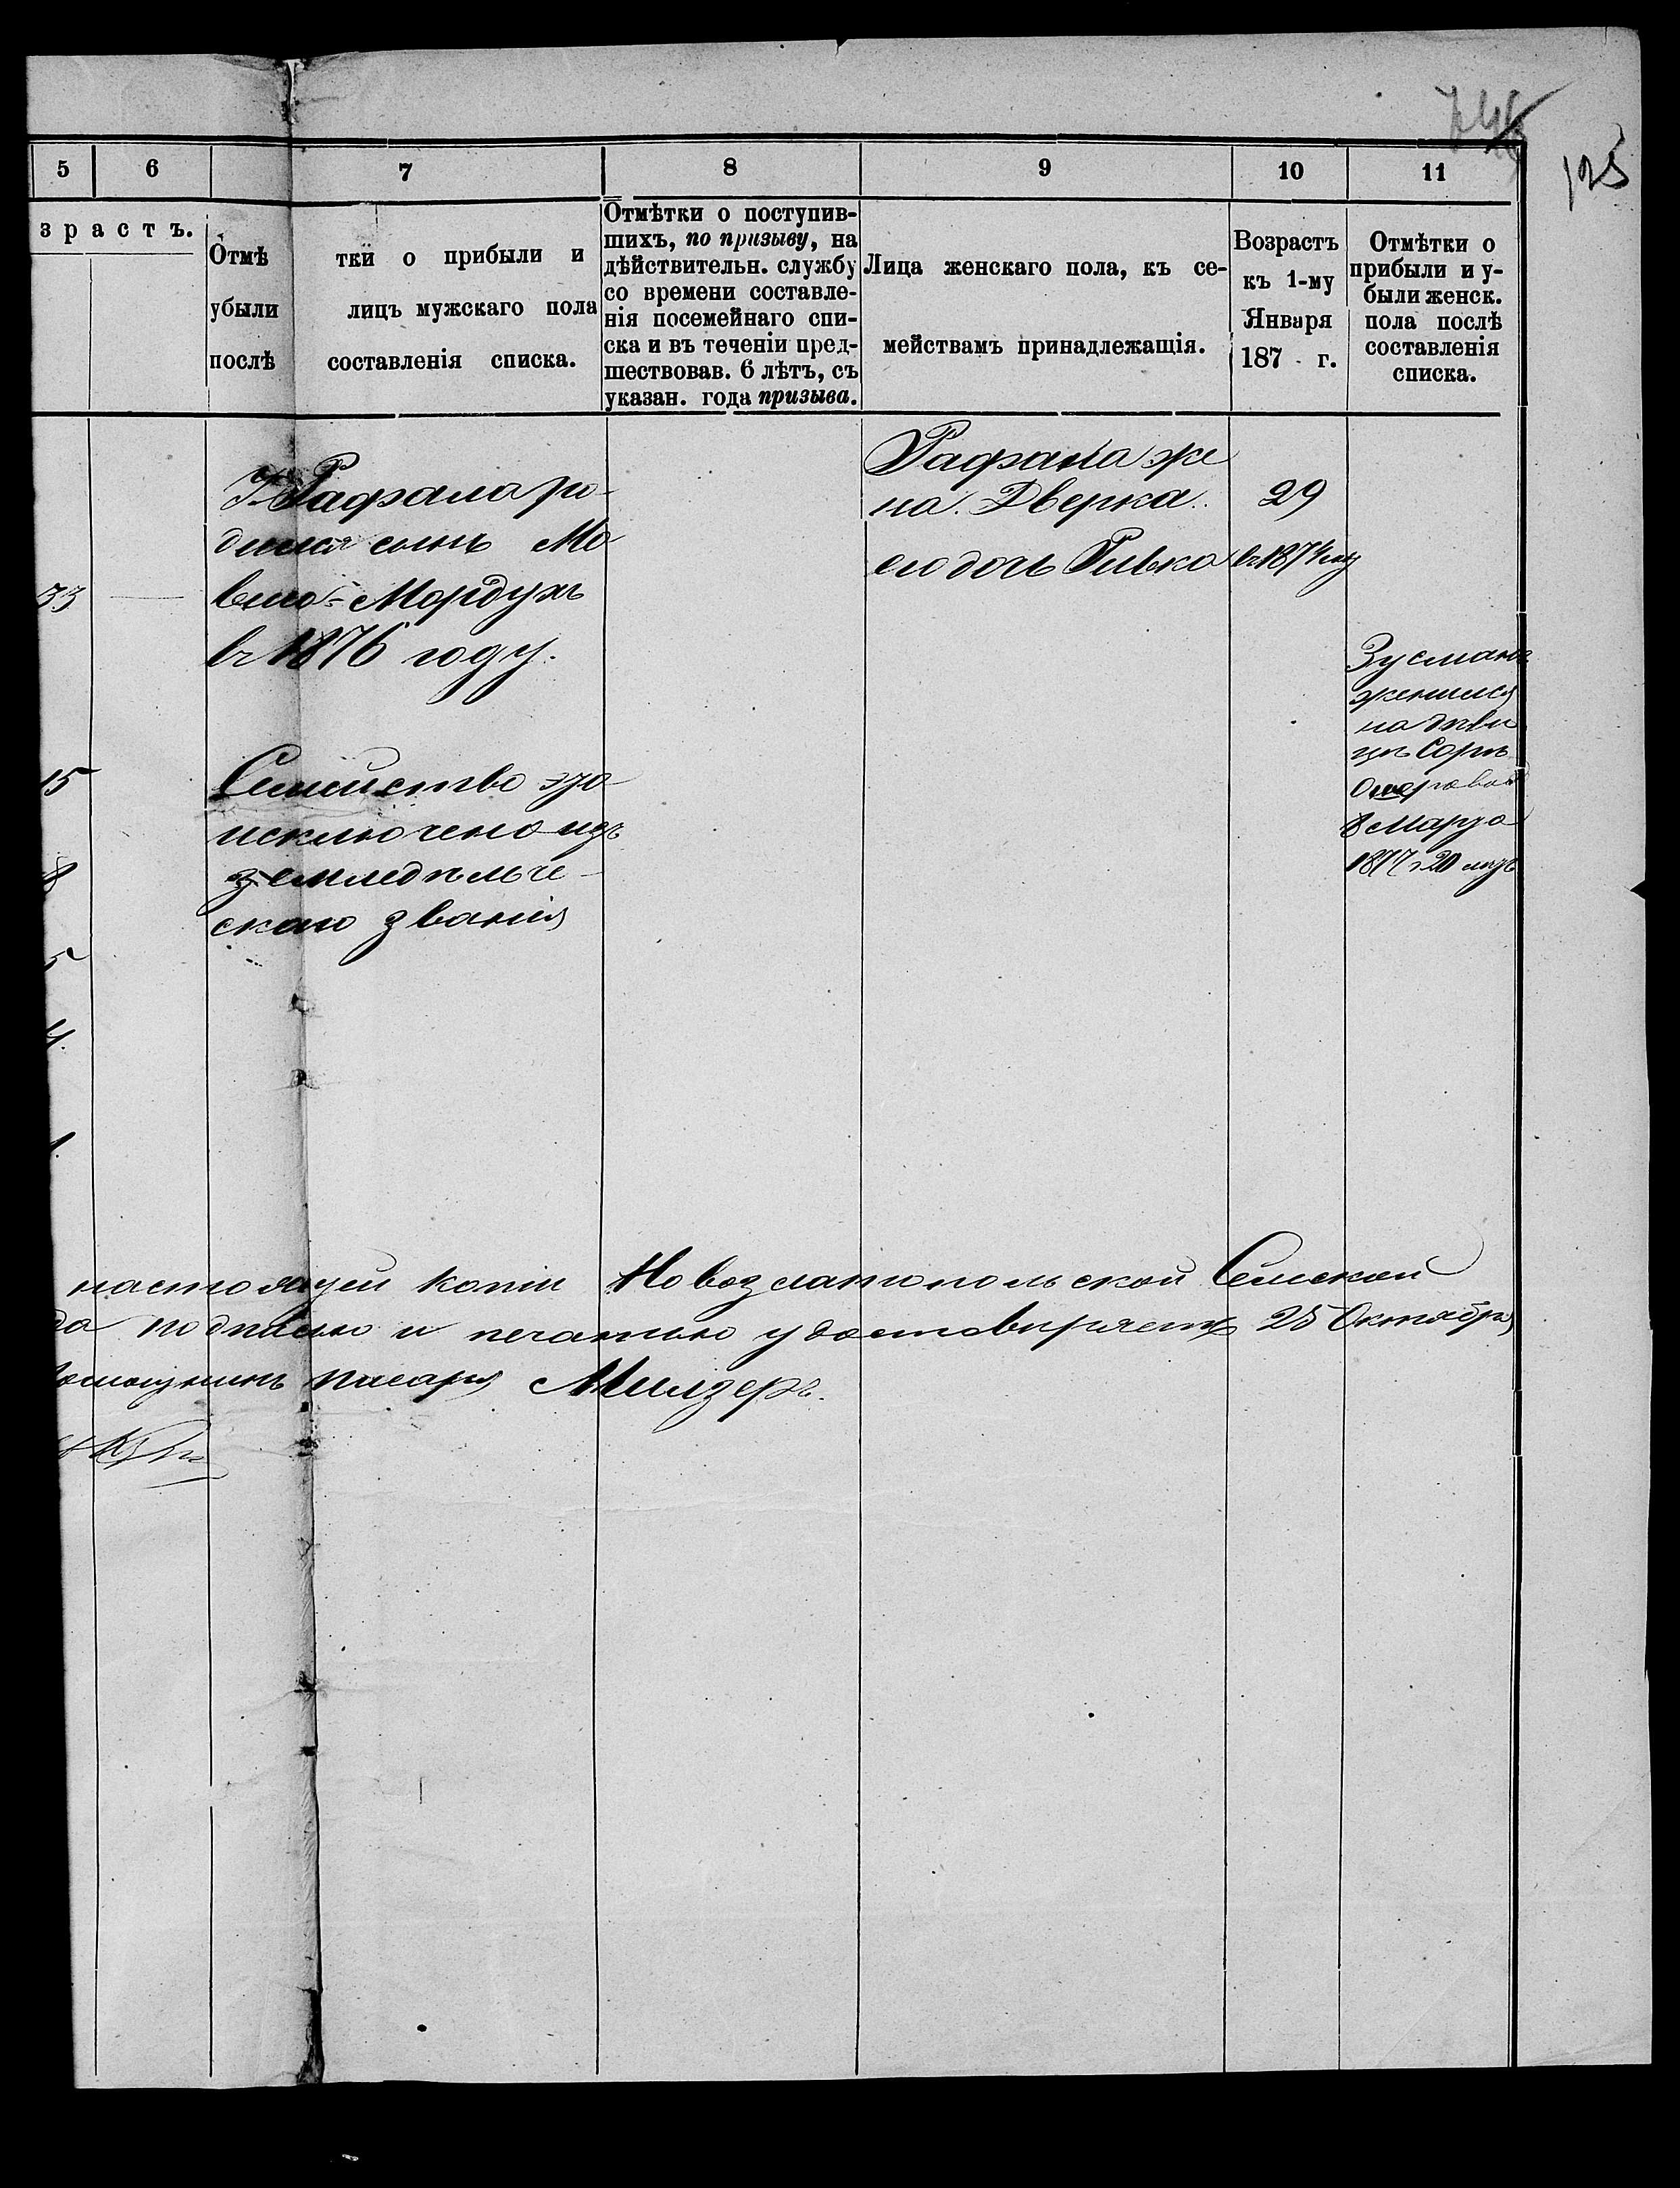 125
5 6 7 8 9 10 11
зрастъ.
Отмѣтки о прибыли и
убыли лицъ мужскаго пола
послѣ составленія списка.
Отмѣтки о поступив-
шихъ, по призыву, на
дѣйствительн. службу
со времени составле-
нія посемейнаго спи-
ска и въ теченіи пред-
шествовав. 6 лѣтъ, съ
указан. года призыва.
Лица женскаго пола, къ се-
мействамъ принадлежащія.
Возрастъ
къ 1-му
Января
187 г.
Отмѣтки о
прибыли и у-
были женск.
пола послѣ
составленія
списка.
33
15
8
5
4.
1.
У Рафала ро-
дился сынъ Мо
вша-Мордухъ
въ 1876 году.
Семейство это
исключено изъ
земледѣльче-
скаго званія
Рафала же
на Дверка 29
его дочь Ривка въ 1874 году
Зусманъ
женился
на дѣви
цѣ Сорѣ
8 Марта
1877 г. 20 лѣтъ
настоящей копіи Новозлатопольской Сельской
подписью и печатью удостовѣряетъ 25 Октября
Помощникъ писаря Милзеръ.